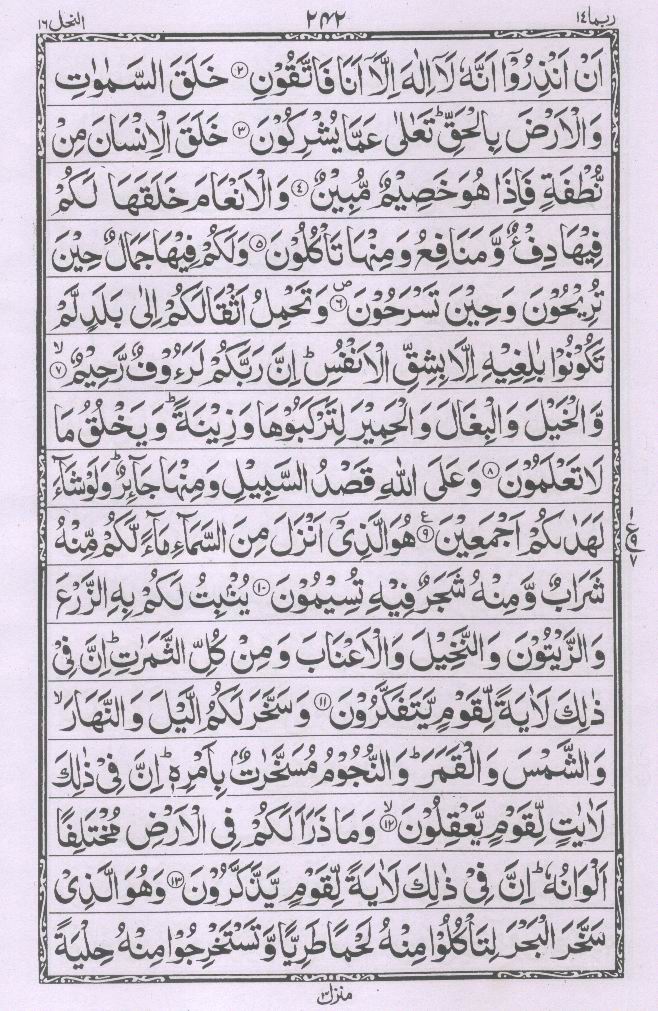 ربما ١٤
٢٤٢
النحل ١٦
اَنْ اَنْذِرُوْۤا اَنَّهٗ لَاۤ اِلٰهَ اِلَّاۤ اَنَا فَاتَّقُوْنِ ﴿۲﴾ خَلَقَ السَّمٰوٰتِ
وَالْاَرْضَ بِالْحَقِّ ؕ تَعٰلٰى عَمَّا يُشْرِكُوْنَ ﴿۳﴾ خَلَقَ الْاِنْسَانَ مِنْ
نُّطْفَةٍ فَاِذَا هُوَ خَصِيْمٌ مُّبِيْنٌ ﴿۴﴾ وَالْاَنْعَامَ خَلَقَهَا لَكُمْ
فِيْهَا دِفْءٌ وَّمَنَافِعُ وَمِنْهَا تَاْكُلُوْنَ ﴿۵﴾ وَلَكُمْ فِيْهَا جَمَالٌ حِيْنَ
تُرِيْحُوْنَ وَحِيْنَ تَسْرَحُوْنَ ﴿۶﴾ ۪ وَتَحْمِلُ اَثْقَالَكُمْ اِلٰى بَلَدٍ لَّمْ
تَكُوْنُوْا بٰلِغِيْهِ اِلَّا بِشِقِّ الْاَنْفُسِ ؕ اِنَّ رَبَّكُمْ لَرَءُوْفٌ رَّحِيْمٌ ﴿۷﴾ ۙ
وَّالْخَيْلَ وَالْبِغَالَ وَالْحَمِيْرَ لِتَرْكَبُوْهَا وَزِيْنَةً ؕ وَيَخْلُقُ مَا
لَا تَعْلَمُوْنَ ﴿۸﴾ وَعَلَى اللّٰهِ قَصْدُ السَّبِيْلِ وَمِنْهَا جَآئِرٌ ؕ وَلَوْ شَآءَ
لَهَدٰىكُمْ اَجْمَعِيْنَ ﴿۹﴾ ع هُوَ الَّذِىْۤ اَنْزَلَ مِنَ السَّمَآءِ مَآءً لَّكُمْ مِّنْهُ
شَرَابٌ وَّمِنْهُ شَجَرٌ فِيْهِ تُسِيْمُوْنَ ﴿۱۰﴾ يُنْۢبِتُ لَكُمْ بِهِ الزَّرْعَ
وَالزَّيْتُوْنَ وَالنَّخِيْلَ وَالْاَعْنَابَ وَمِنْ كُلِّ الثَّمَرٰتِ ؕ اِنَّ فِىْ
ذٰلِكَ لَاٰيَةً لِّقَوْمٍ يَّتَفَكَّرُوْنَ ﴿۱۱﴾ وَسَخَّرَ لَكُمُ الَّيْلَ وَالنَّهَارَ ۙ
وَالشَّمْسَ وَالْقَمَرَ ؕ وَالنُّجُوْمُ مُسَخَّرٰتٌۢ بِاَمْرِهٖ ؕ اِنَّ فِىْ ذٰلِكَ
لَاٰيٰتٍ لِّقَوْمٍ يَّعْقِلُوْنَ ﴿۱۲﴾ ۙ وَمَا ذَرَاَ لَكُمْ فِى الْاَرْضِ مُخْتَلِفًا
اَلْوَانُهٗ ؕ اِنَّ فِىْ ذٰلِكَ لَاٰيَةً لِّقَوْمٍ يَّذَّكَّرُوْنَ ﴿۱۳﴾ وَهُوَ الَّذِىْ
سَخَّرَ الْبَحْرَ لِتَاْكُلُوْا مِنْهُ لَحْمًا طَرِيًّا وَّتَسْتَخْرِجُوْا مِنْهُ حِلْيَةً
ع ۹ ۷
منزل ۳